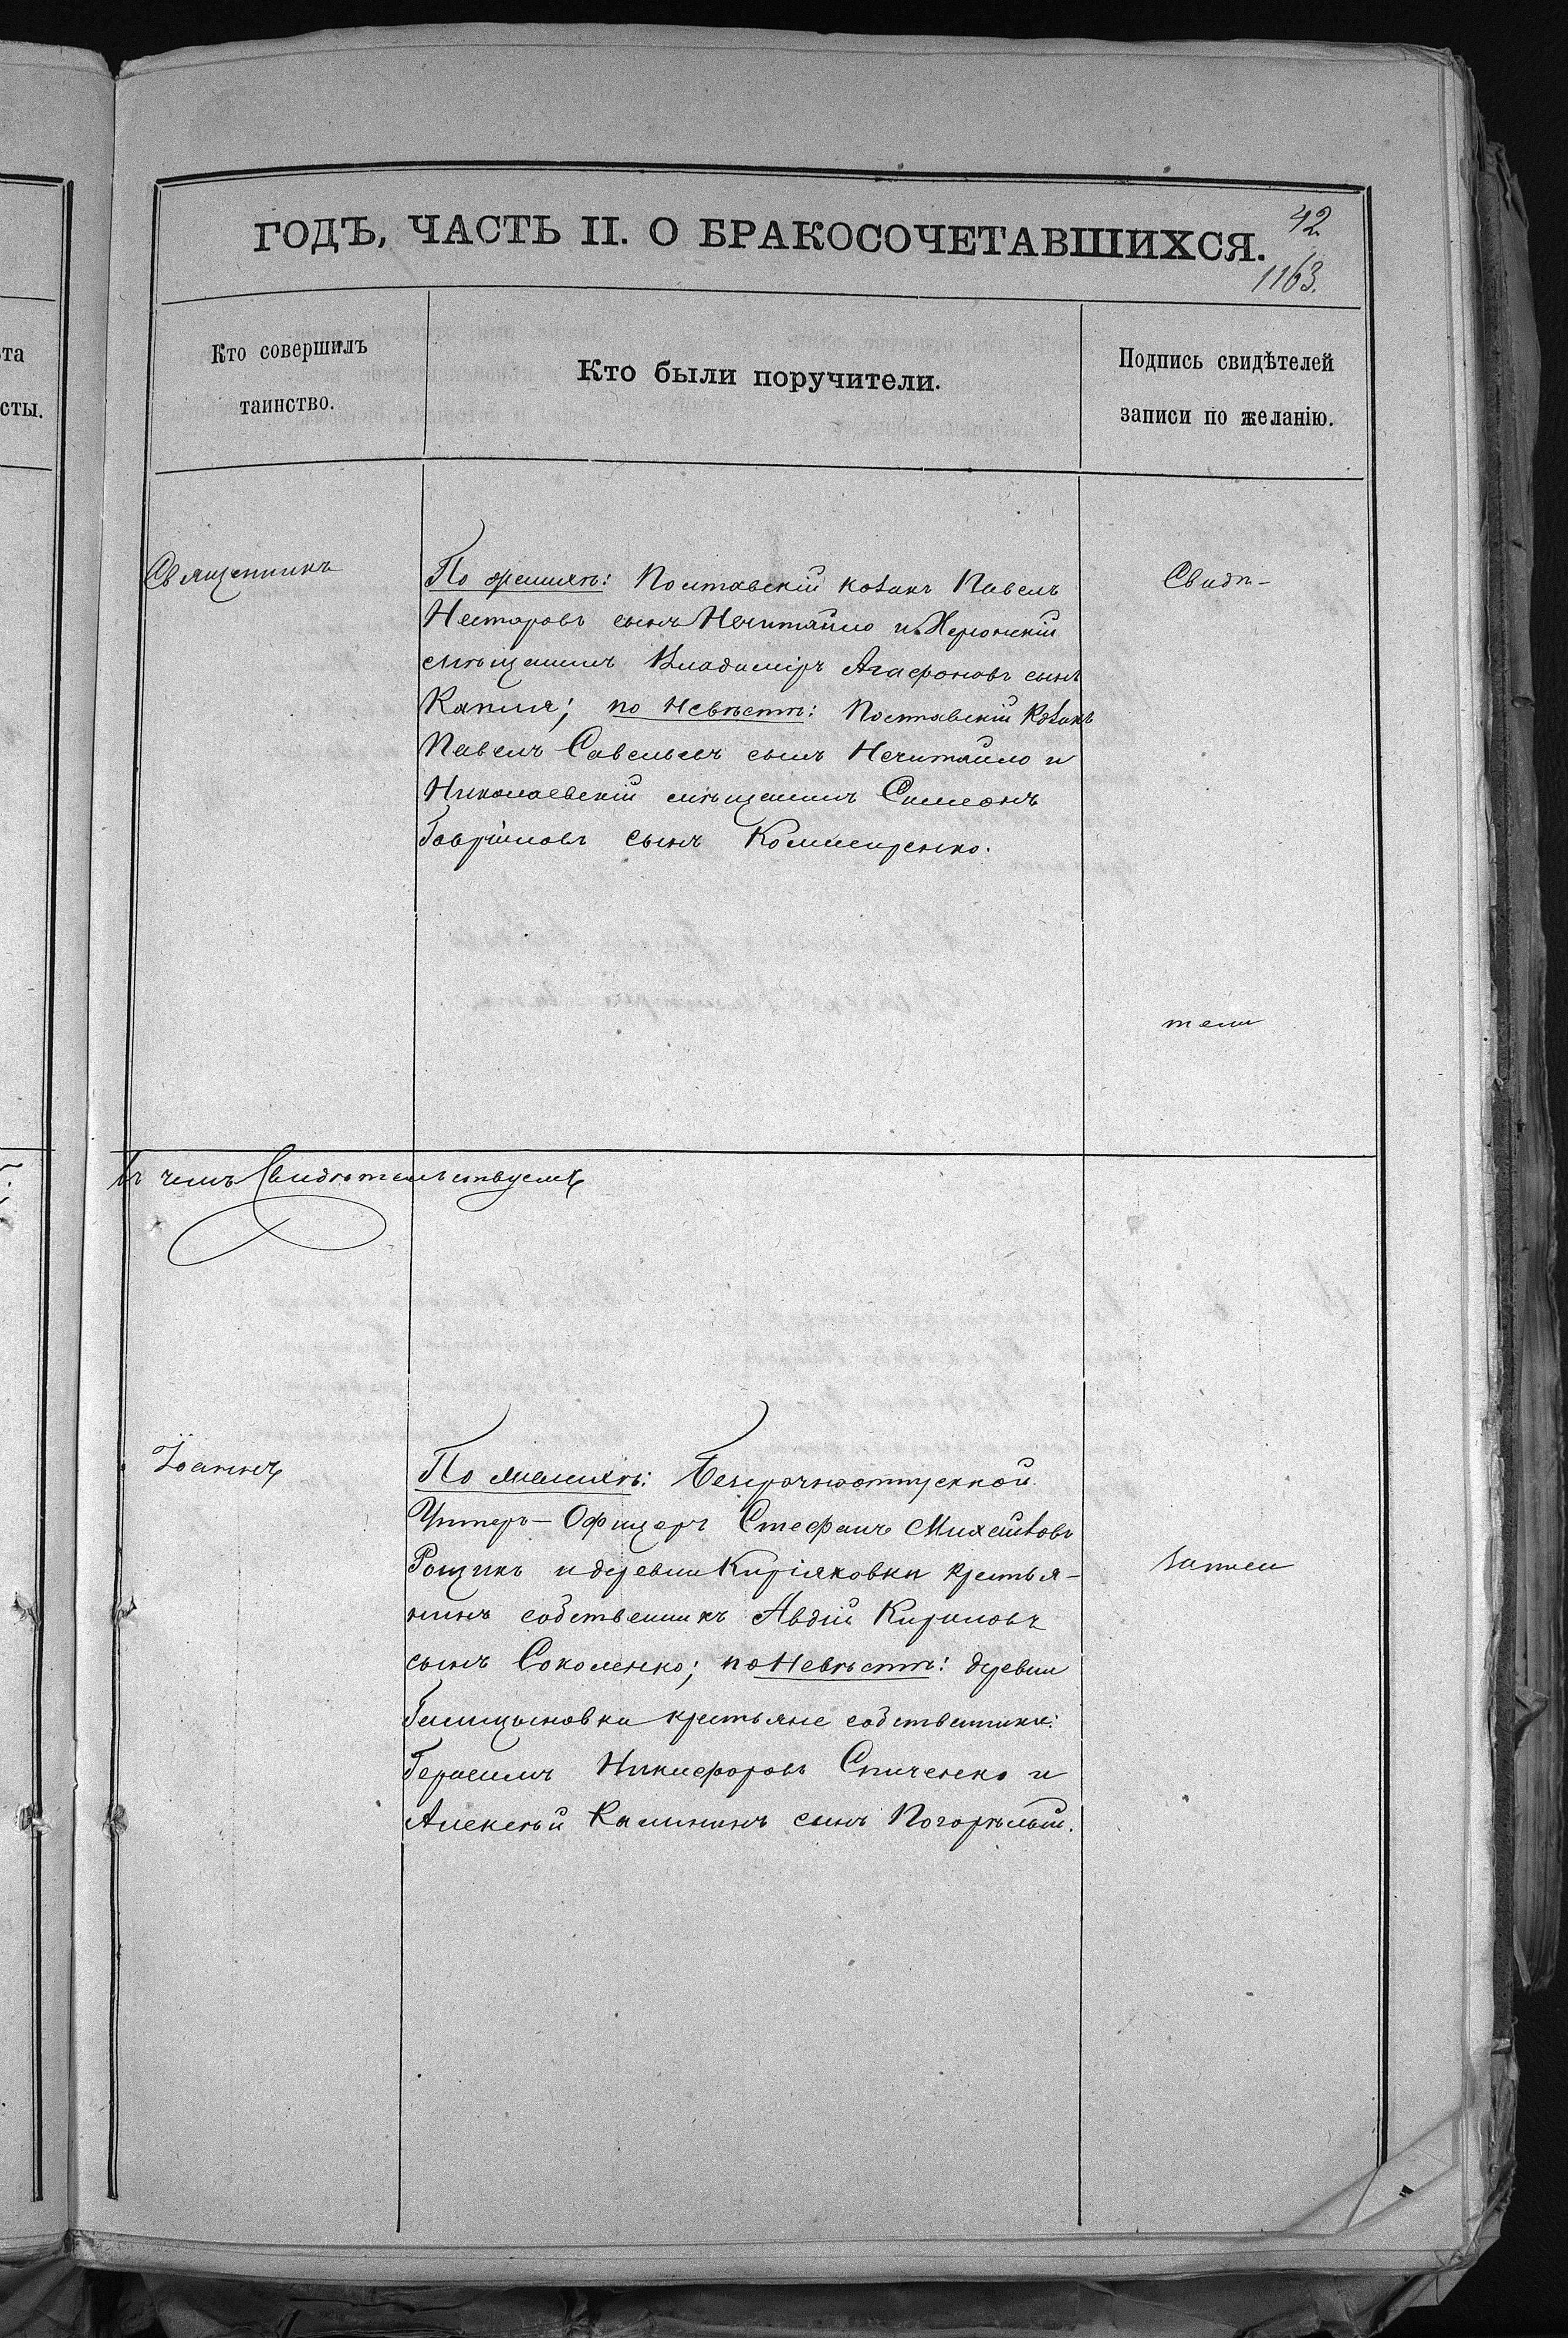 та
сты.
ГОДЪ, ЧАСТЬ II. О БРАКОСОЧЕТАВШИХСЯ.
42
1163.
Кто совершилъ
таинство.
Кто были поручители.
Подпись свидѣтелей
записи по желанію.
Священникъ
По женихѣ: Полтавскій козакъ Павелъ
Несторовъ сынъ Нечитайло и Херсонскій
мѣщанинъ Владиміръ Агафоновъ сынъ
Капля; по невѣстѣ: Полтавскій козакъ
Павелъ Савельевъ сынъ Нечитайло и
Николаевскій мѣщанинъ Симеонъ
Гавріиловъ сынъ
Свидѣ-
тели
Въ чемъ свидѣтельствуемъ
Іоаннъ
По женихѣ: Безсрочноотпускной
Унтеръ-Офицеръ Стефанъ Михайловъ
Рощикъ и деревни Киріяковки крестья-
нинъ собственникъ Авдій Кириловъ
сынъ Соколенко; по невѣстѣ: деревни
крестьяне собственники:
Герасимъ Никифоровъ Спиченко и
Алексѣй Калининъ сынъ Погорѣлый.
записи